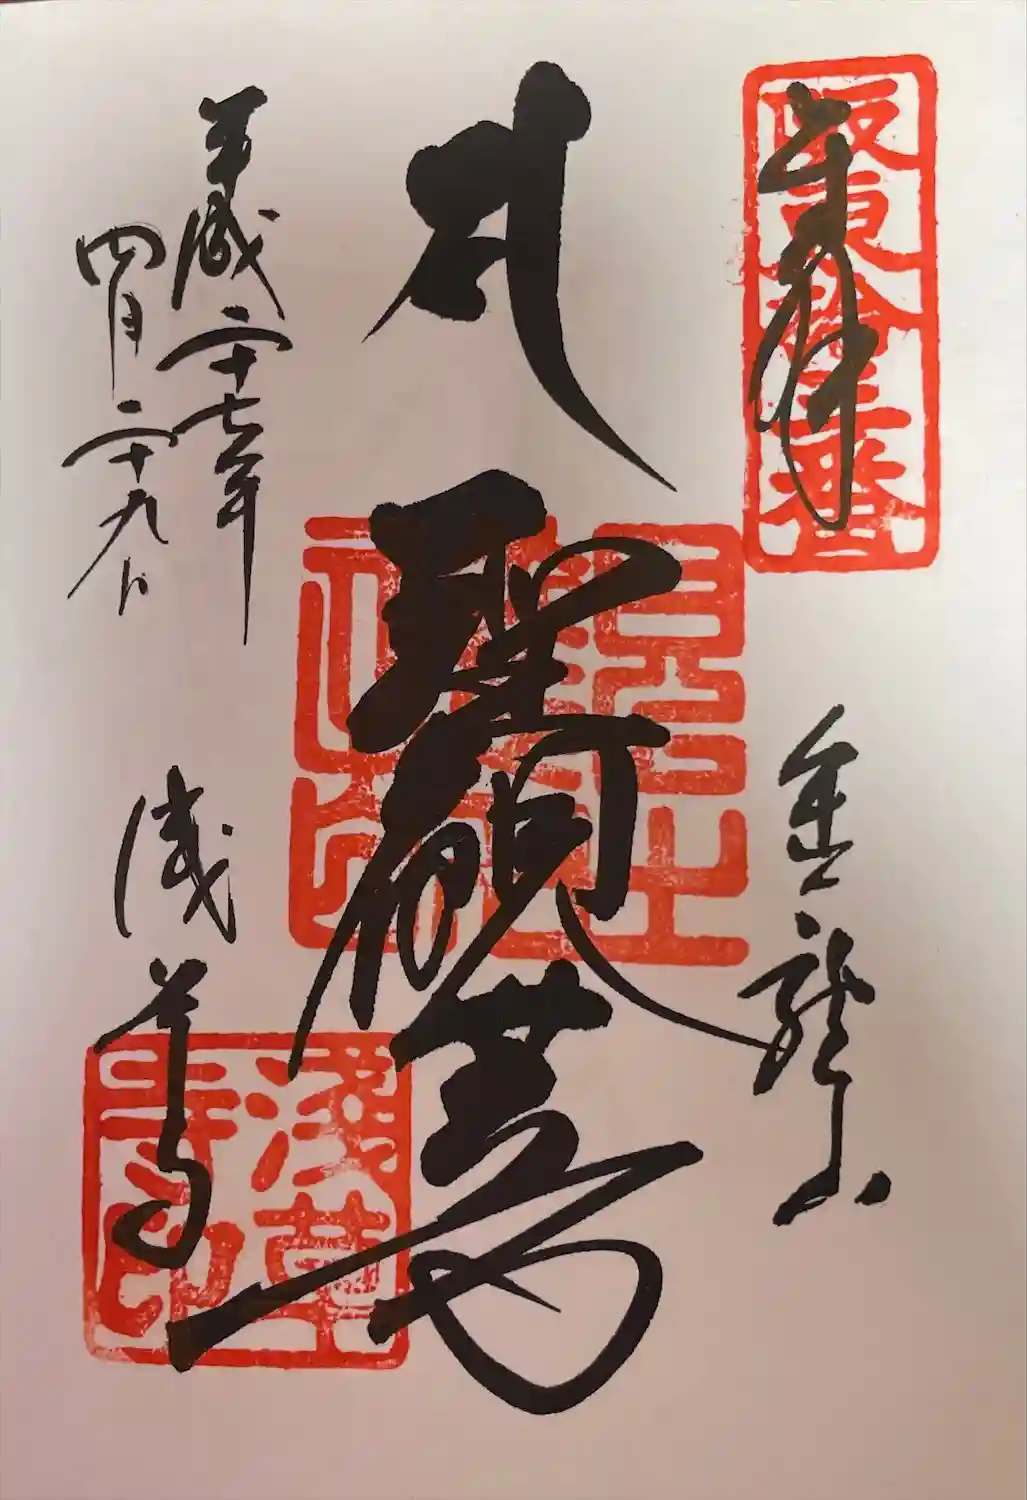 奉拝
阪東拾三番
金龍山
聖観世音
平成二十七年
四月二十九日
浅草寺
淺草寺印